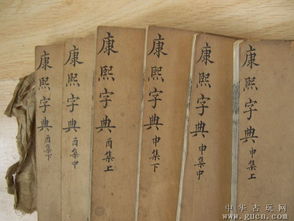 康熙字典
酉集下
康熙字典
酉集中
康熙字典
酉集上
康熙字典
申集下
康熙字典
申集中
康熙字典
申集上
中华古玩网
www.gucn.com